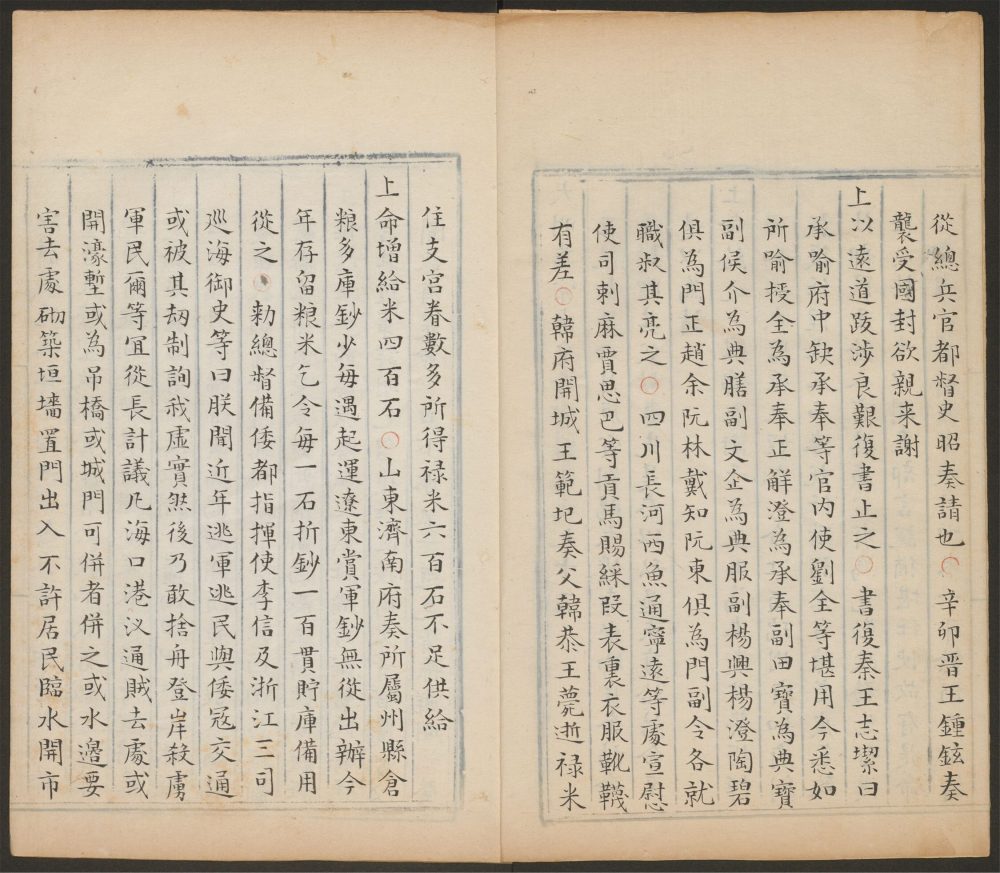 從總兵官都督史昭奏請也○辛卯晋王鍾鉉奏
襲受國封欲親来謝
上以遠道跋涉良艱復書止之○書復秦王志㓗曰
承喻府中缺承奉等官内使劉全等堪用今悉如
所喻授全為承奉正解澄為承奉副田寶為典寶
副侯介為典膳副文企為典服副楊興楊澄陶碧
俱為門正趙余阮林戴知阮東俱為門副令各就
職叔其亮之○四川長河西魚通寧遠等處宣慰
使司剌麻賈思巴等貢馬賜綵叚表裏衣服靴韈
有差○韓府開城王範圯奏父韓恭王薨逝禄米
住支宮眷數多所得禄米六百石不足供給
上命增給米四百石○山東濟南府奏所屬州縣倉
粮多庫鈔少每遇起運遼東賞軍鈔無從出辦今
年存留粮米乞令每一石折鈔一百貫貯庫備用
從之○勑總督備倭都指揮使李信及浙江三司
巡海御史等曰朕聞近年逃軍逃民與倭冦交通
或被其刼制詢我虛實然後乃敢捨舟登岸殺虜
軍民爾等宜從長計議凡海口港汊通賊去處或
開濠塹或為吊橋或城門可併者併之或水邉要
害去處砌築垣墻置門出入不許居民臨水開市